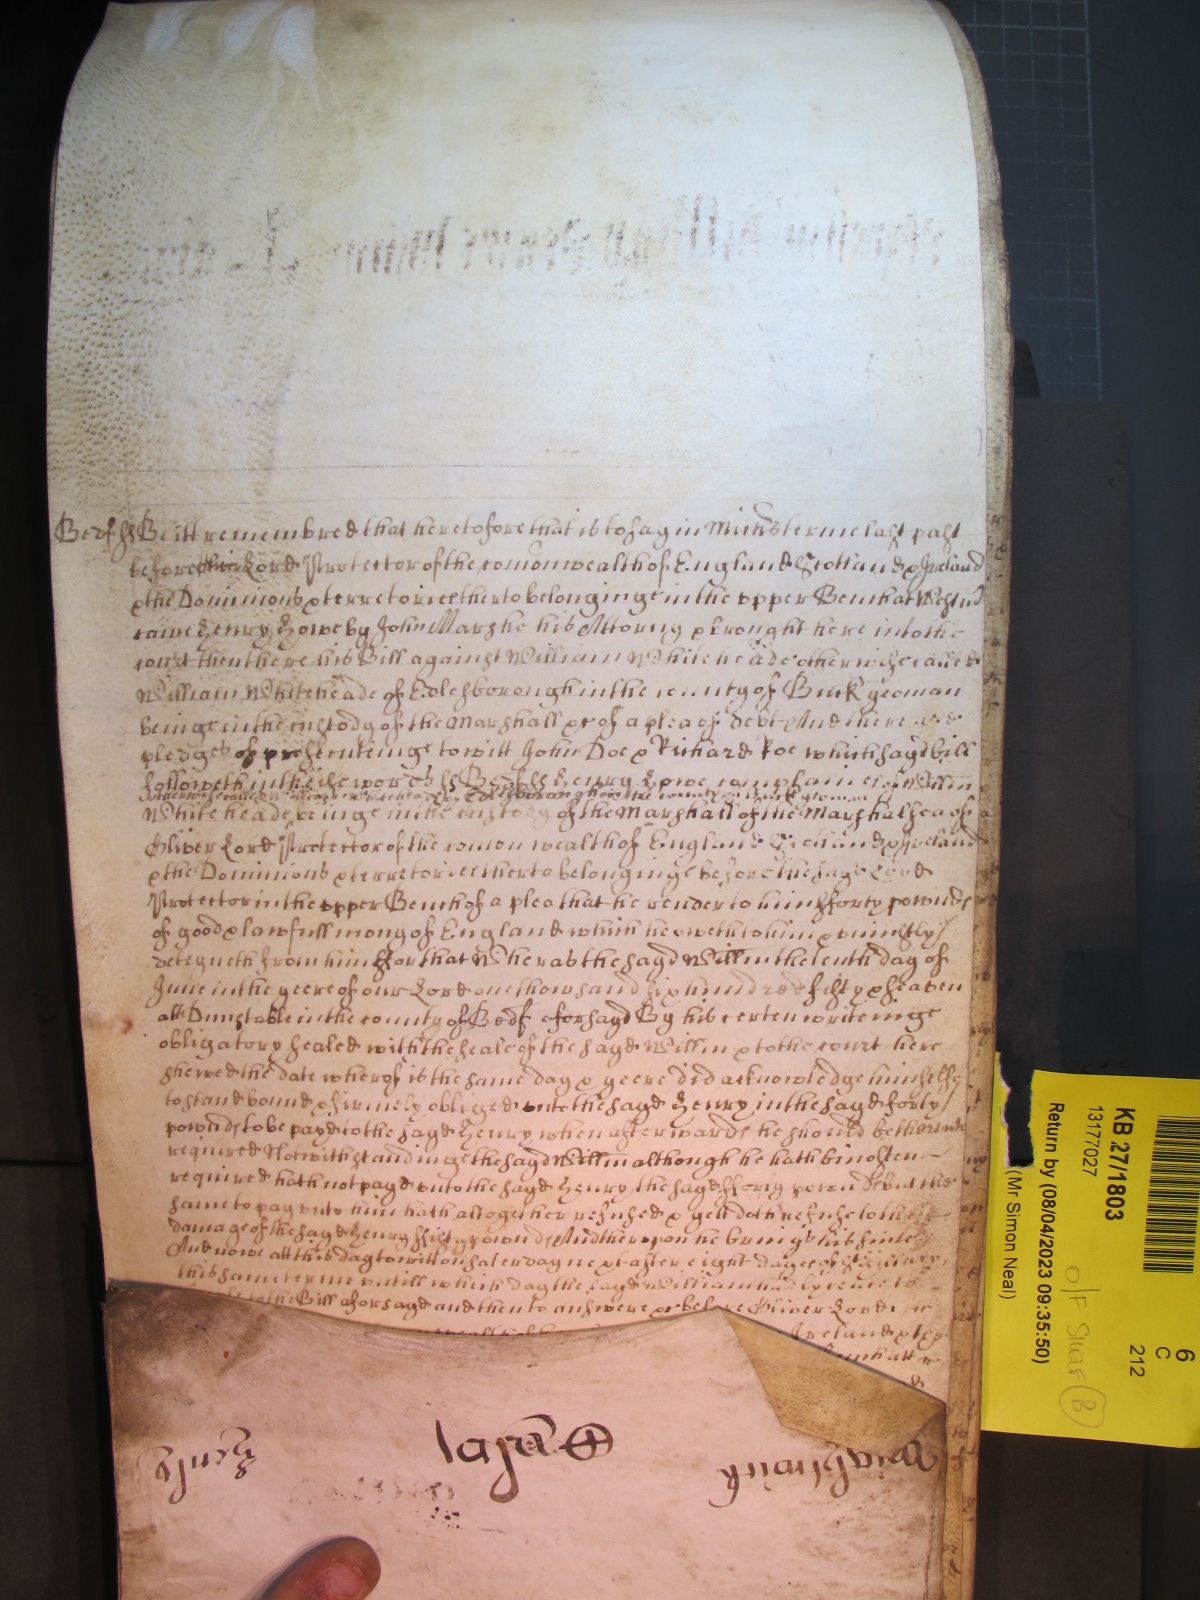 Bedf ss Be itt remembred that heretofore that is to say in Mich's terme last past
before Oliver Lord Protector of the comonwealth of England Scotland & Ireland
& the Dominions & terretories therto belonginge in the vpper Bench at Westm
came Henry Howe by John Marshe his Attorny & brought here into the
court then there his Bill against William Whiteheade otherwise called
William Whiteheade of Edlesborough in the county of Buck yeoman
beinge in the custody of the Marshall &c of a plea of debt And there are
pledges of prosecutinge to witt John Doe & Richard Roe which sayd bill
followeth in these words ss Bedf ss Henry Howe complaines of Willm
otherwise called William Whiteheade of Edlesborough in the county of Buck yeoman
Whiteheade beinge in the custody of the Marshall of the Marshalsea of
Oliver Lord Protector of the comon wealth of England Scotland & Ireland
& the Dominions & terretories therto belonginge before the sayd Lord
Protector in the vpper Bench of a plea that he render to him fforty pownds
of good & lawfull mony of England which he oweth to him & vniustly
deteyneth from him ffor that Wheras the sayd Willm the tenth day of
June in the yeere of our Lord one thowsand six hundred fifty & seaven
att Dunstable in the county of Bedf aforsayd By his certen writeinge
obligatory sealed with the seale of the sayd Willm & to the court here
shewed the date wherof is the same day & yeere did acknowledge himselfe
to stand bound & firmely obliged vnto the sayd Henry in the sayd forty
pownds to be payd to the sayd Henry when afterwards he should be therunto
required Notwithstandinge the sayd Willm although he hath bin often
required hath not payd vnto the sayd Henry the sayd fforty pownds but the
same to pay vnto him hath altogether refused & yett doth refuse to the
damage of the sayd Henry ffifty pownds And therupon he brings his suite
And nowe att this day to witt on saterday next after eight dayes of St Hillary
this same terme vntill which day the sayd William had lycence to
to the Bill aforsayd and then to answere &c before Oliver Lord
Ireland &
Bench att
Henry
KB 27/1803
13177027
Return by (08/04/2023 09:35:50)
(Mr Simon Neal)
O/F Shelf B
6
C
212